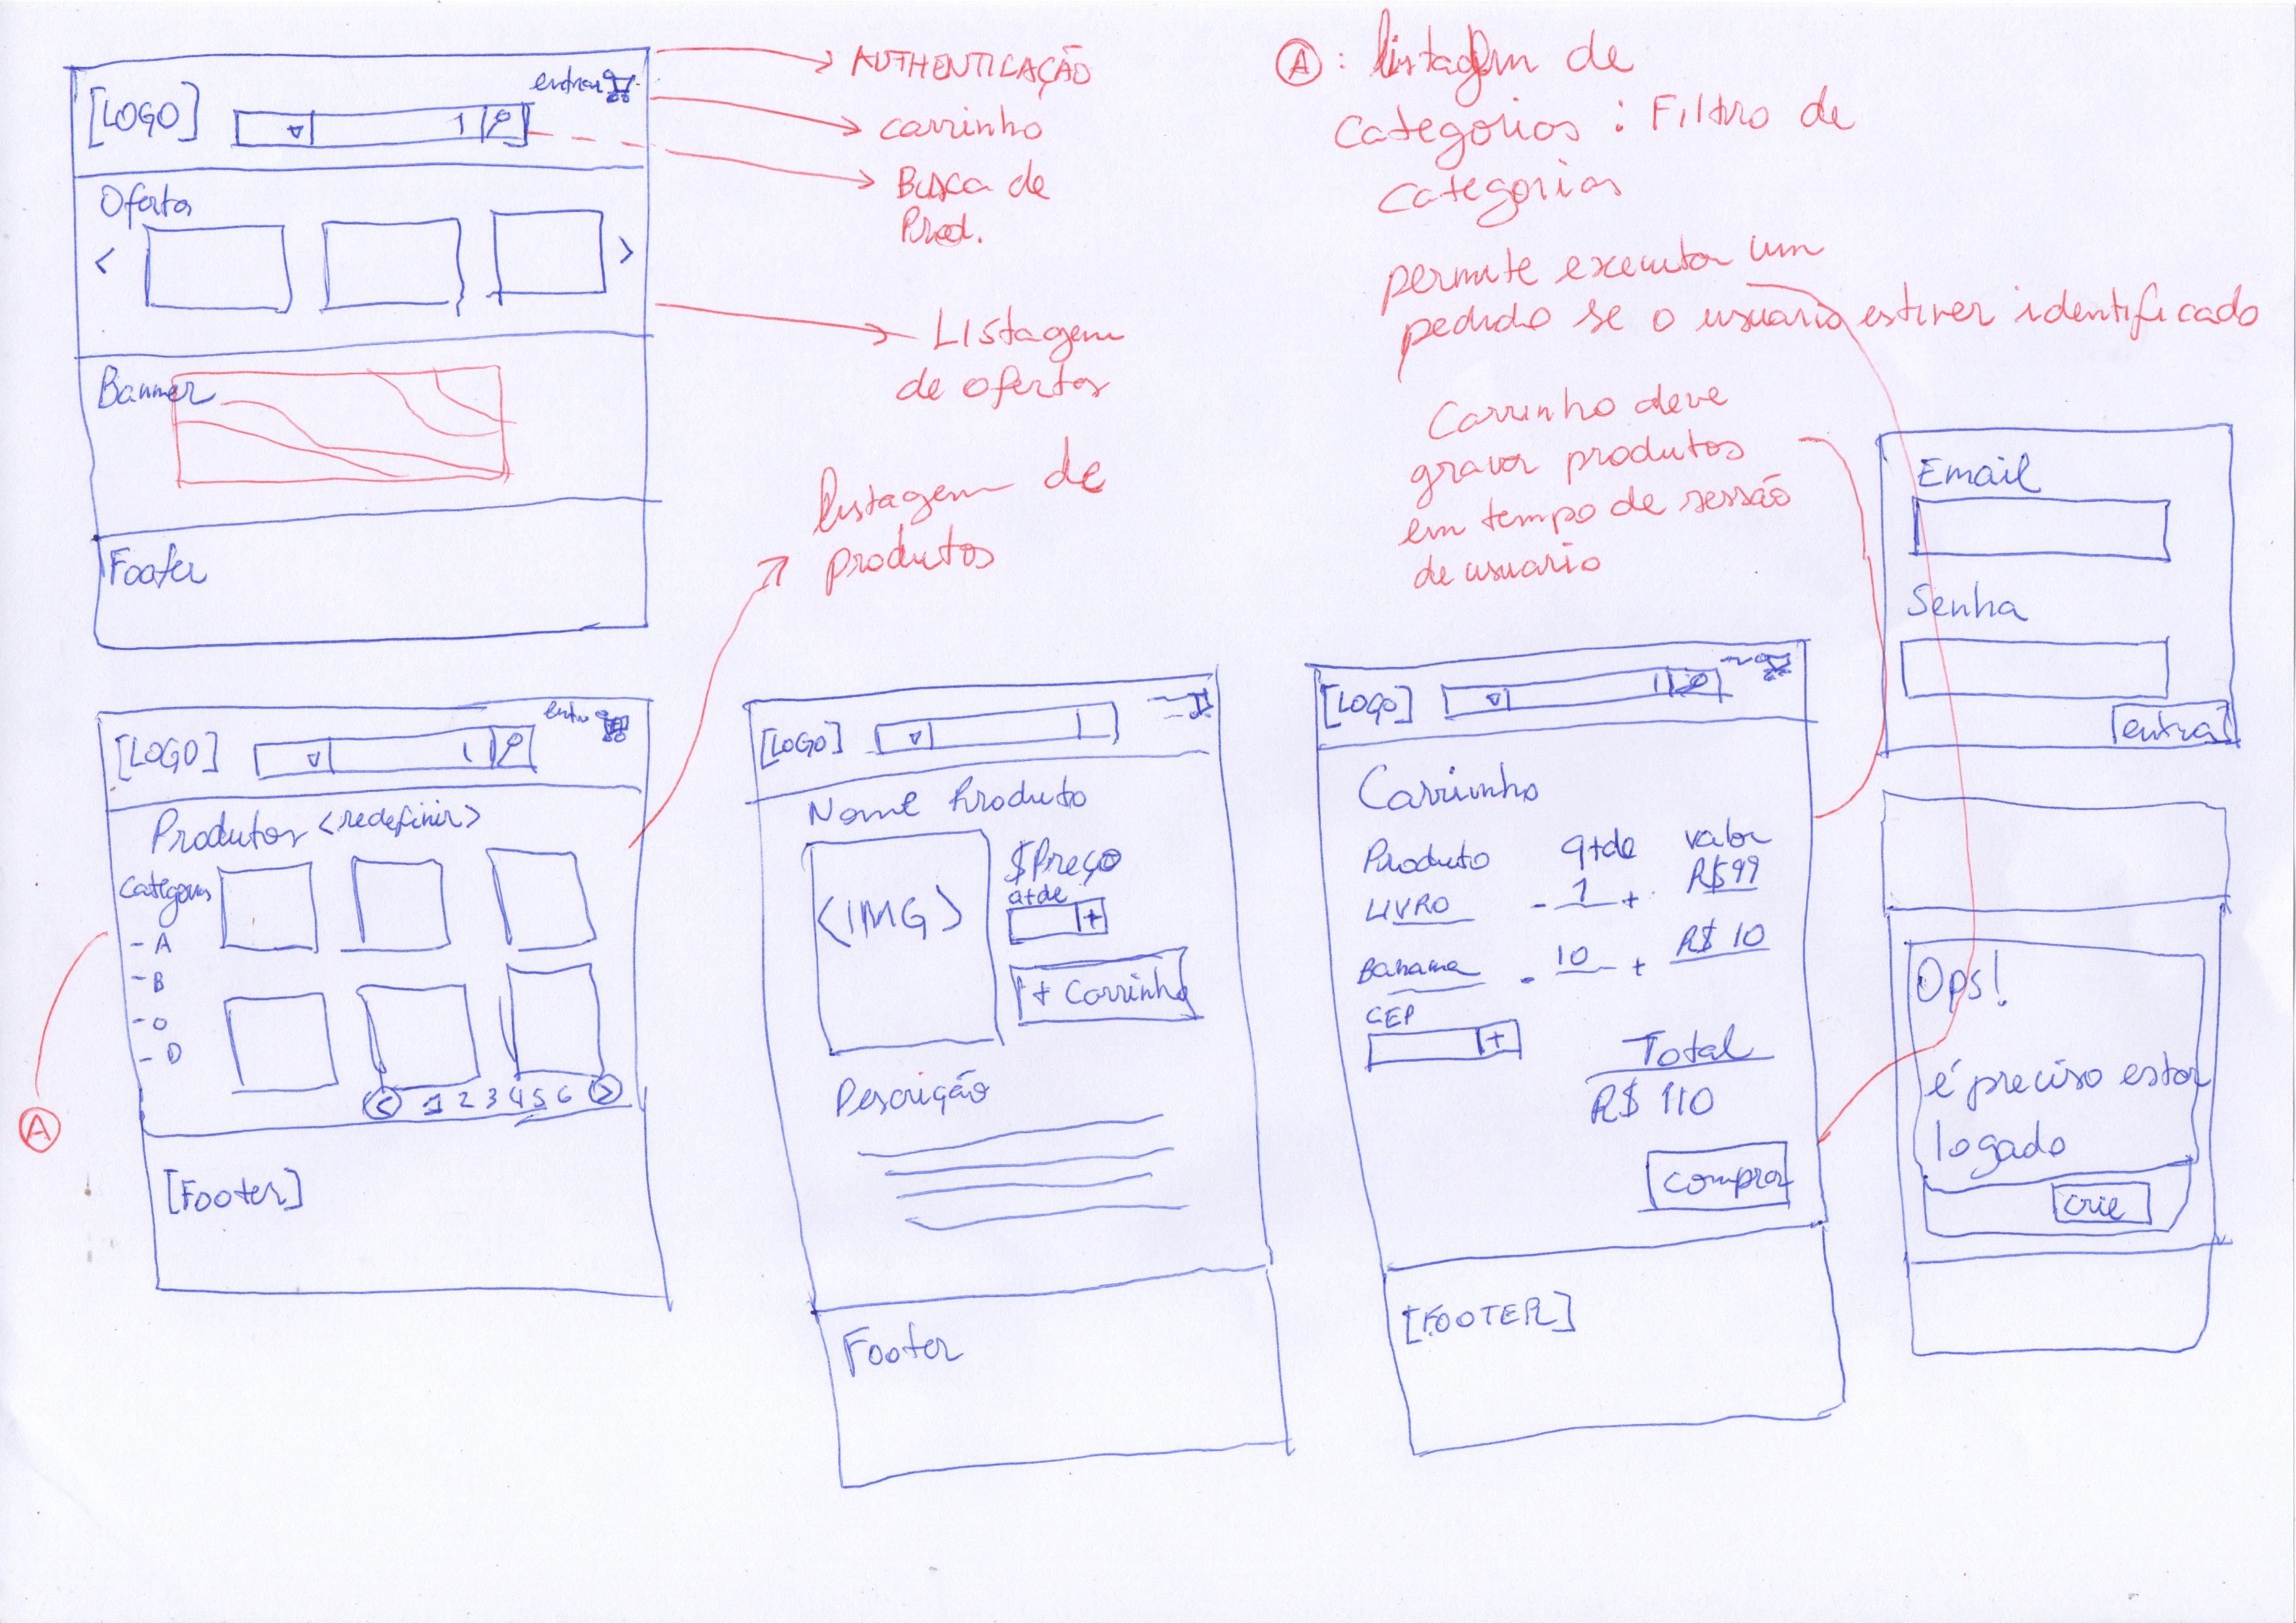 [LOGO]
entrar
Ofertas
<
>
Banner
Footer
AUTHENTICAÇÃO
carrinho
Busca de
Prod.
Listagem
de ofertas
listagem de
produtos
A : listagem de
categorias : Filtro de
categorias
permite executar um
pedido se o usuario estiver identificado
Carrinho deve
gravar produtos
em tempo de sessão
de usuario
Email
Senha
entrar
[LOGO]
entrar
Produtos <redefinir>
Categorias
- A
- B
- D
< 1 2 3 4 5 6 >
[Footer]
A
[LOGO]
Nome Produto
<IMG>
$Preço
qtde
+
+ Carrinho
Descrição
Footer
[LOGO]
Carrinho
Produto qtde valor
LIVRO - 1 + R$99
Banana - 10 + R$ 10
CEP
+
Total
R$ 110
comprar
[FOOTER]
Ops!
é preciso estar
logado
crie